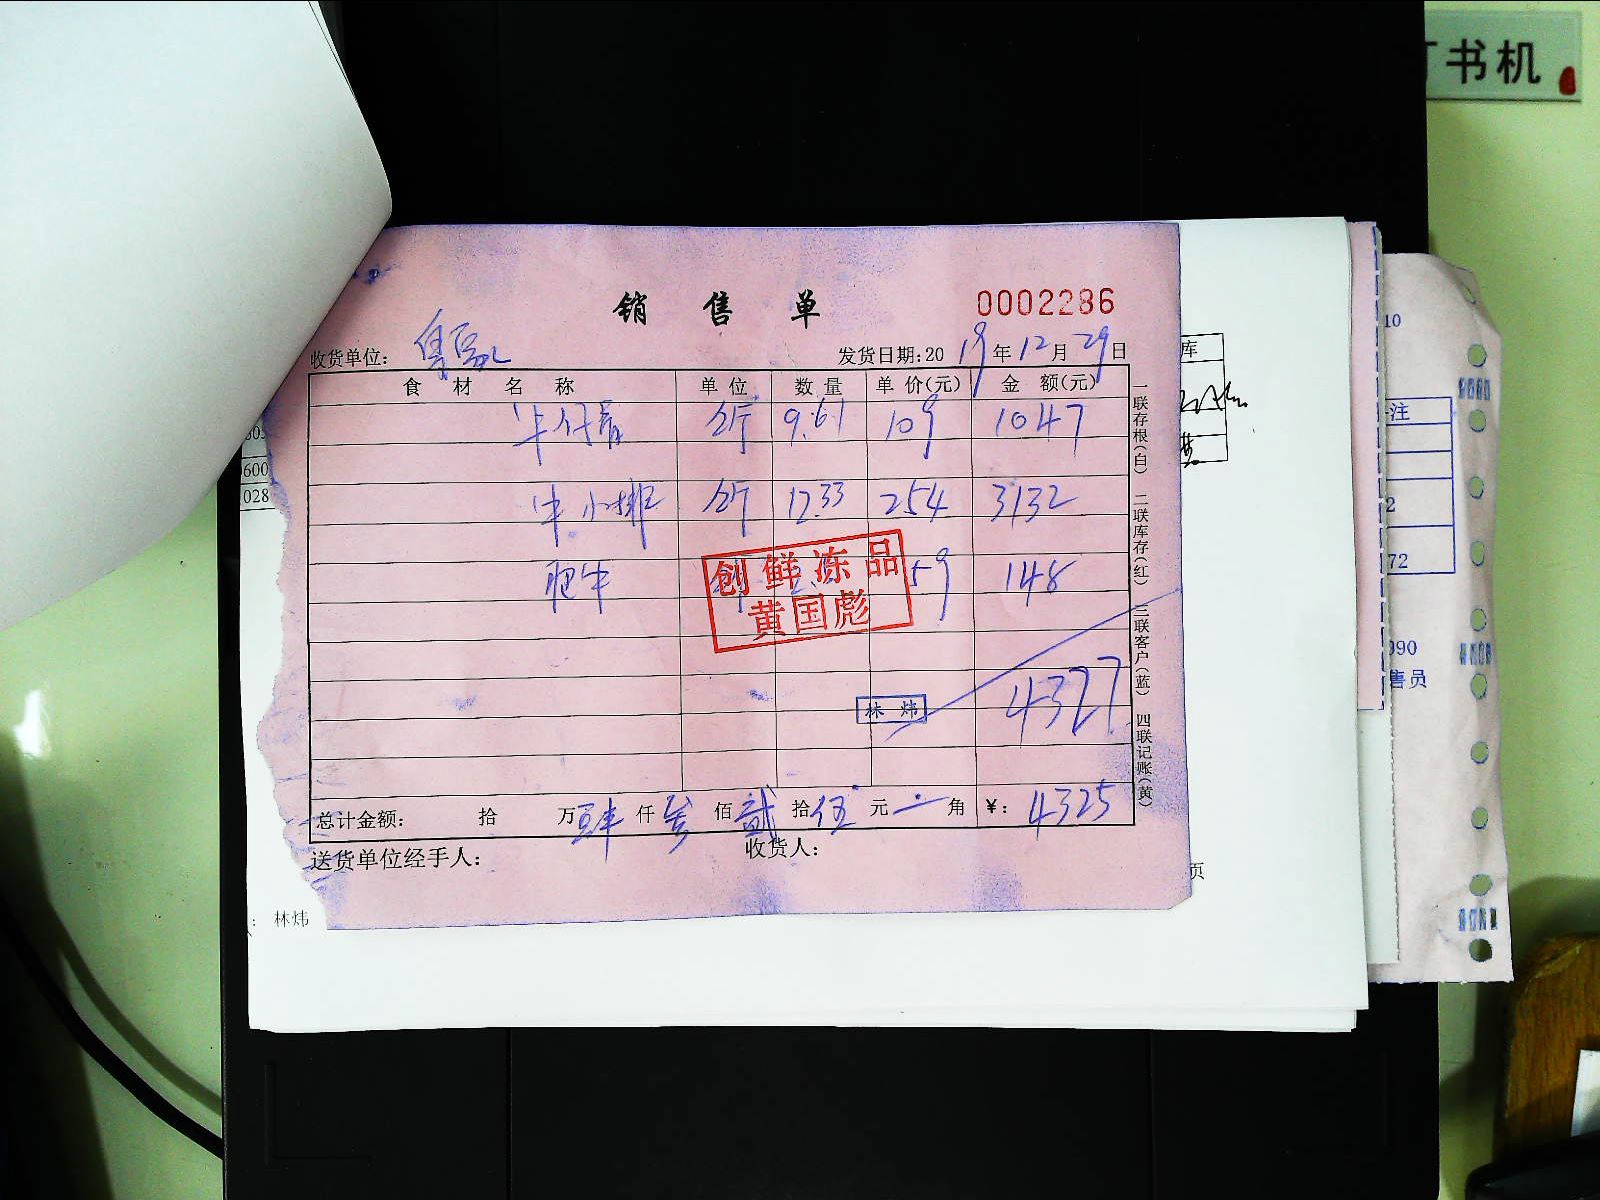 订书机
销 售 单
0002286
收货单位：
发货日期:2019年12月29日
食 材 名 称 单 位 数 量 单 价(元) 金 额(元)
牛仔骨 公斤 9.61 109 1047
牛小排 公斤 12.33 254 3132
肥牛 59 148
创鲜冻品
黄国彪
4327
林炜
总计金额： 拾 万肆仟叁佰贰拾伍元 角 ￥：4325
送货单位经手人： 收货人：
一联存根(白) 二联库存(红) 三联客户(蓝) 四联记账(黄)
林炜
页
库
600
028
10
注
2
72
990
售员